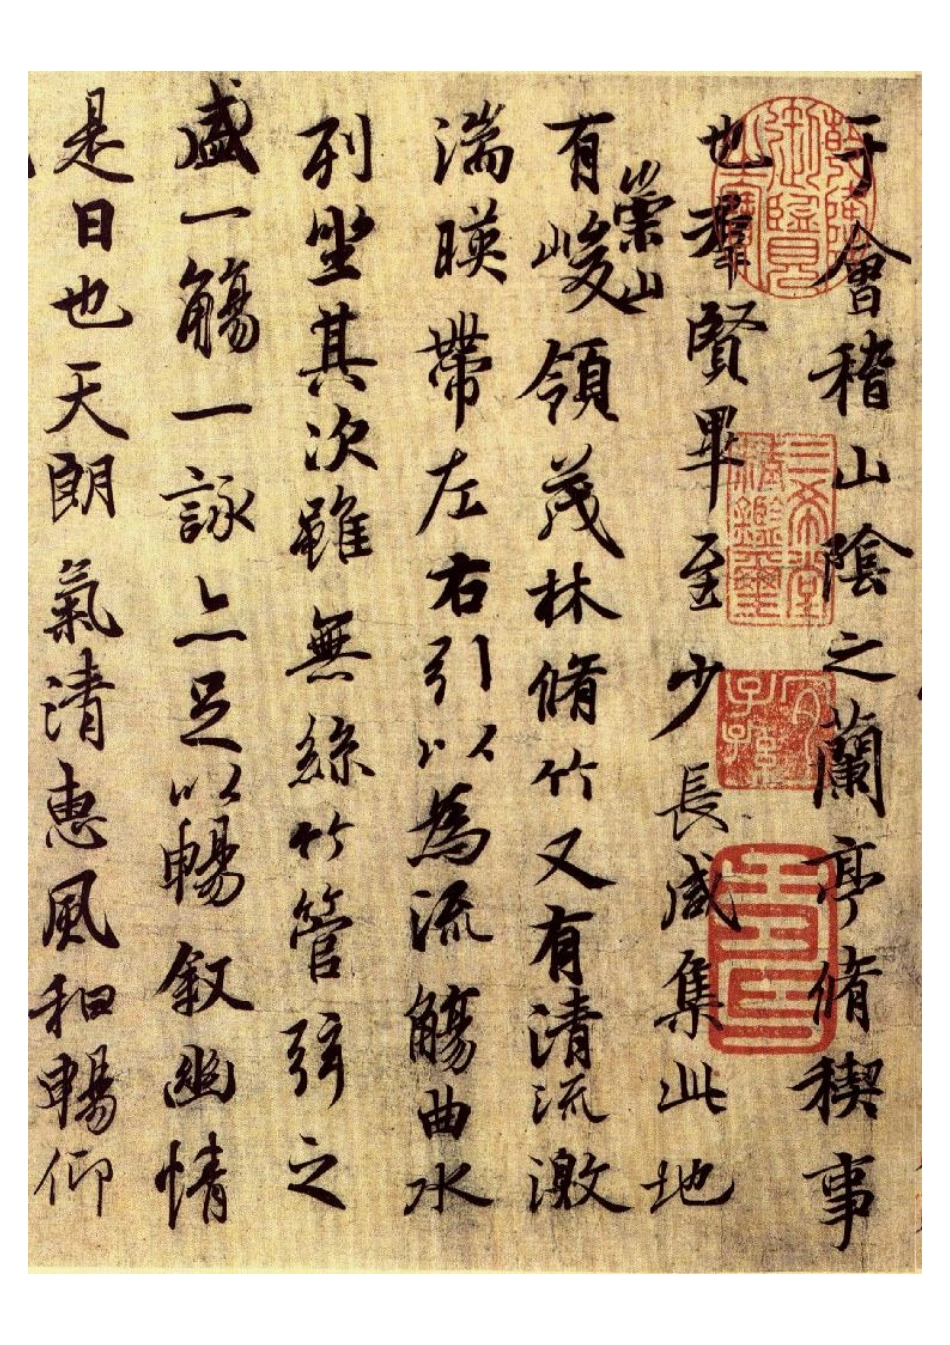 于會稽山陰之蘭亭脩稧事
也羣賢畢至少長咸集此地
崇山
有峻領茂林脩竹又有清流激
湍暎帶左右引以為流觴曲水
列坐其次雖無絲竹管弦之
盛一觴一詠亦足以暢敘幽情
是日也天朗氣清惠風和暢仰
三希堂精鑑璽
宜子孫